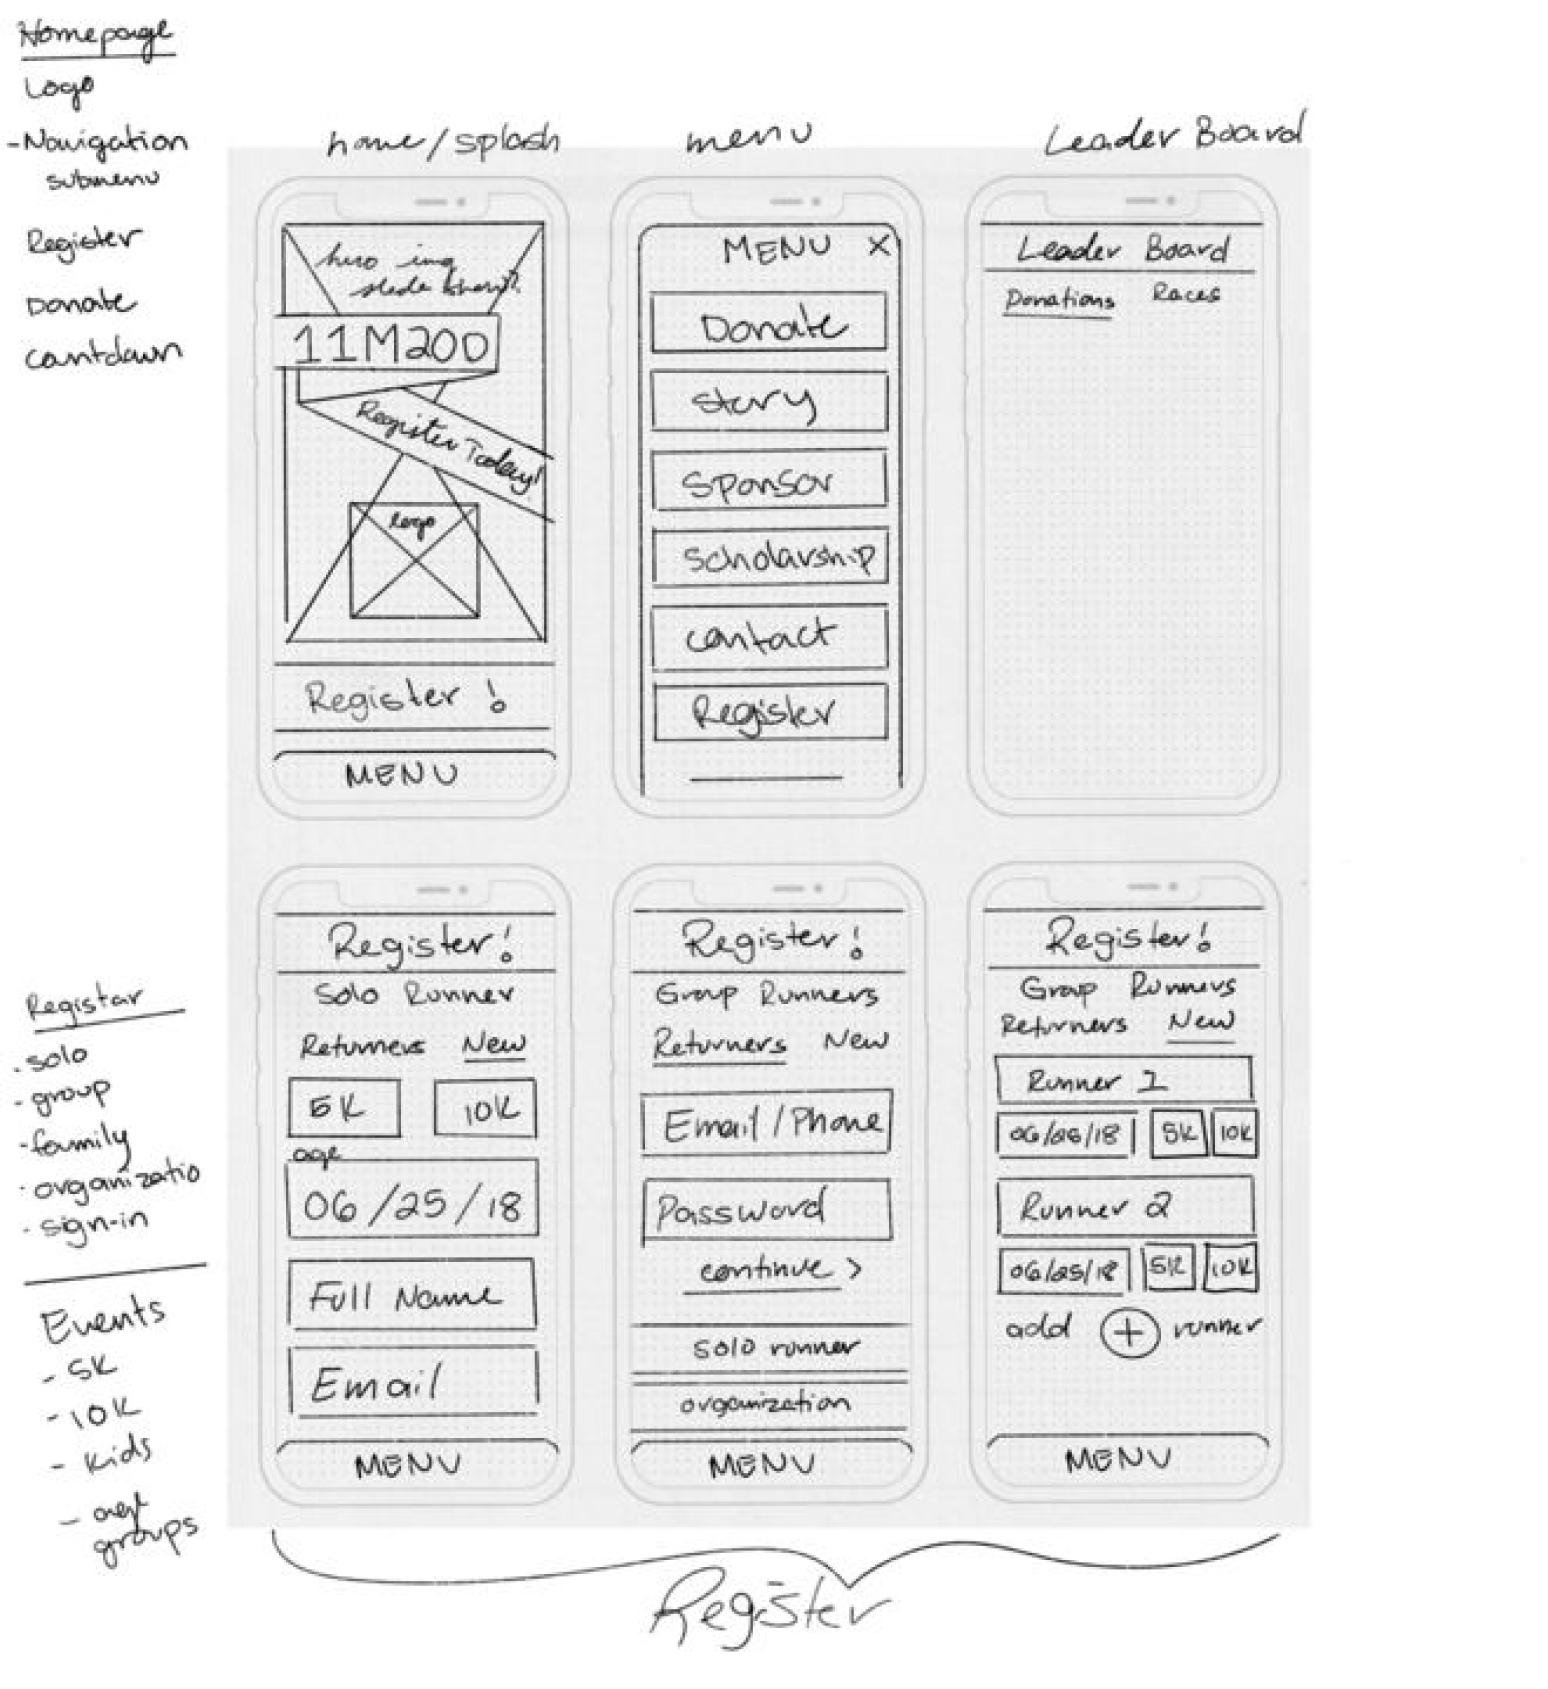 Homepage
Logo
-Navigation
submenu
Register
Donate
countdown
home/splash
hero img
11M200
Register Today!
logo
Register !
MENU
menu
MENU X
Donate
story
sponsor
scholarship
contact
Register
Leader Board
Leader Board
Donations Races
Registar
. solo
- group
- family
. organizatio
. sign-in
Events
- 5K
- 10K
- Kids
- age
groups
Register!
Solo Runner
Returners New
5K 10K
age
06/25/18
Full Name
Email
MENU
Register!
Group Runners
Returners New
Email / Phone
Password
continue >
solo runner
organization
MENU
Register!
Group Runners
Returners New
Runner 1
06/25/18 5K 10K
Runner 2
06/25/18 5K 10K
add + runner
MENU
Register